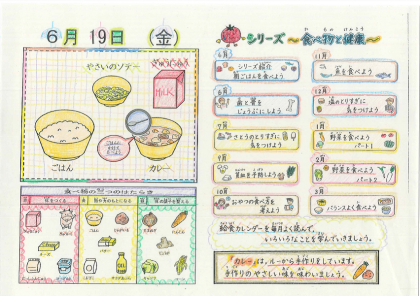 6月 19日 (金)
やさいのソテー
ぎゅうにゅう
MILK
ごはん
カレー
食べ物の三つのはたらき
シリーズ 〜食べ物と健康〜
4月
シリーズ紹介
朝ごはんを食べよう
6月
歯と骨を
じょうぶにしよう
7月
さとうのとりすぎに
気をつけよう
9月
貧血を予防しよう
10月
おやつの食べ方を
考えよう
11月
魚を食べよう
12月
塩のとりすぎに
気をつけよう
1月
野菜を食べよう
パート1
2月
野菜を食べよう
パート2
3月
バランスよく食べよう
給食カレンダーを毎月よく読んで、
いろいろなことを学んでいきましょう。
カレーは、ルーから手作りをしています。
手作りのやさしい味を味わいましょう。